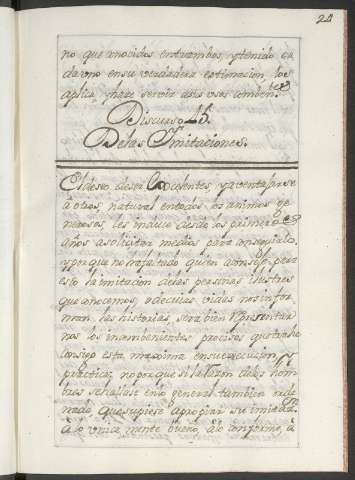 24
no que conocidos entrambos, y tenido ca
da uno en su verdadera estimacion, los
aplica, y hace servir a sus usos
Discurso 45.
De las Imitaciones.
El deseo de ser Excelentes, y aventajarse
à otros, natural en todos los animos ge
nerosos, les induce desde los primeros
años a solicitar medios para conseguirlo,
y porque no ha faltado quien aconseje para
esto la imitacion de las personas ilustres
que conocemos, ò de cuias vidas nos infor
man las historias, sera bien representar
nos los inconbenientes precisos que trahe
consigo esta maxima en su execucion, y
practica; no porque si la razon de los hom
bres se hallase en lo general tambien orde
nada, que supiese apropiar su imitazon
à lo unicamente bueno, ò lo conforme, à